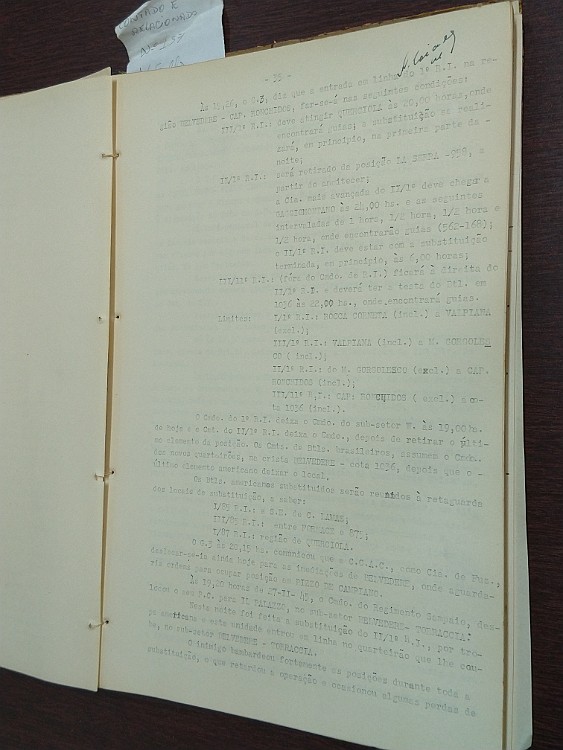 CONTADO E
RELACIONADO
- 35 -
Às 19,25, o S.3, diz que a entrada em linha do 1º R.I. na re-
gião BELVEDERE - CAP. RONCHIDOS, far-se-á nas seguintes condições:
III/1º R.I.: deve atingir QUERCIOLA às 20,00 hs, onde
encontrará guias; a substituição se reali-
zará, em princípio, na primeira parte da
noite;
II/1º R.I.: será retirado da posição LA SERRA -958, a
partir do anoitecer;
a Cia. mais avançada do II/1º deve chegar a
às 24,00 hs. e as seguintes
intervaladas de 1 hora, 1/2 hora, 1/2 hora e
1/2 hora, onde encontrarão guias (562-168);
o II/1º R.I. deve estar com a substituição
terminada, em princípio, às 6,00 horas;
III/11º R.I.: (fóra do Cmdo. do R.I.) ficará à direita do
II/1º R.I. e deverá ter a testa do Btl. em
1036 às 22,00 hs., onde encontrará guias.
Limites: I/1º R.I.: ROCCA CORNETA (incl.) a VALPIANA
(excl.);
III/1º R.I.: VALPIANA (incl.) a M. GORGOLES
CO ( incl.);
II/1º R.I.: de M. GORGOLESCO (excl.) a CAP.
RONCHIDOS (incl.);
III/11º R.I.: CAP: RONCHIDOS ( excl.) a co-
ta 1036 (incl.).
O Cmdo. do 1º R.I. deixa o Cmdo. do sub-setor N. às 19,00 hs.
de hoje e o Cmt. do II/1º R.I. deixa o Cmdo., depois de retirar o últi-
mo elemento da posição. Os Cmts. de Btls. brasileiros, assumem o Cmdo.
dos novos quarteirões, na crista BELVEDERE - cota 1036, depois que o -
último elemento americano deixar o local.
Os Btls. americanos substituidos serão reunidos à retaguarda
dos locais de substituição, a saber:
I/85 R.I.: a S.E. de C. LAMAR;
III/85 R.I.: entre e 871;
I/87 R.I.: região de QUERCIOLA.
O S.3 às 20,15 hs. comunicou que a C.C.A.C., como Cia. de Fuz.,
deslocar-se-ia ainda hoje para as imediações de BELVEDERE, onde aguarda-
ria ordens para ocupar posição em PIZZO DE CAMPIANO.
Às 19,00 horas de 27-II-45, o Cmdo. do Regimento Sampaio, des-
locou o seu P.C. para IL PALAZZO, no sub-setor BELVEDERE- TORRACCIA.
Nesta noite foi feita a substituição do II/1º R.I., por tro-
pa americana e esta unidade entrou em linha no quarteirão que lhe cou-
be, no sub-setor BELVEDERE - TORRACCIA.
O inimigo bombardeou fortemente as posições durante toda a
substituição, o que retardou a operação e ocasionou algumas perdas de